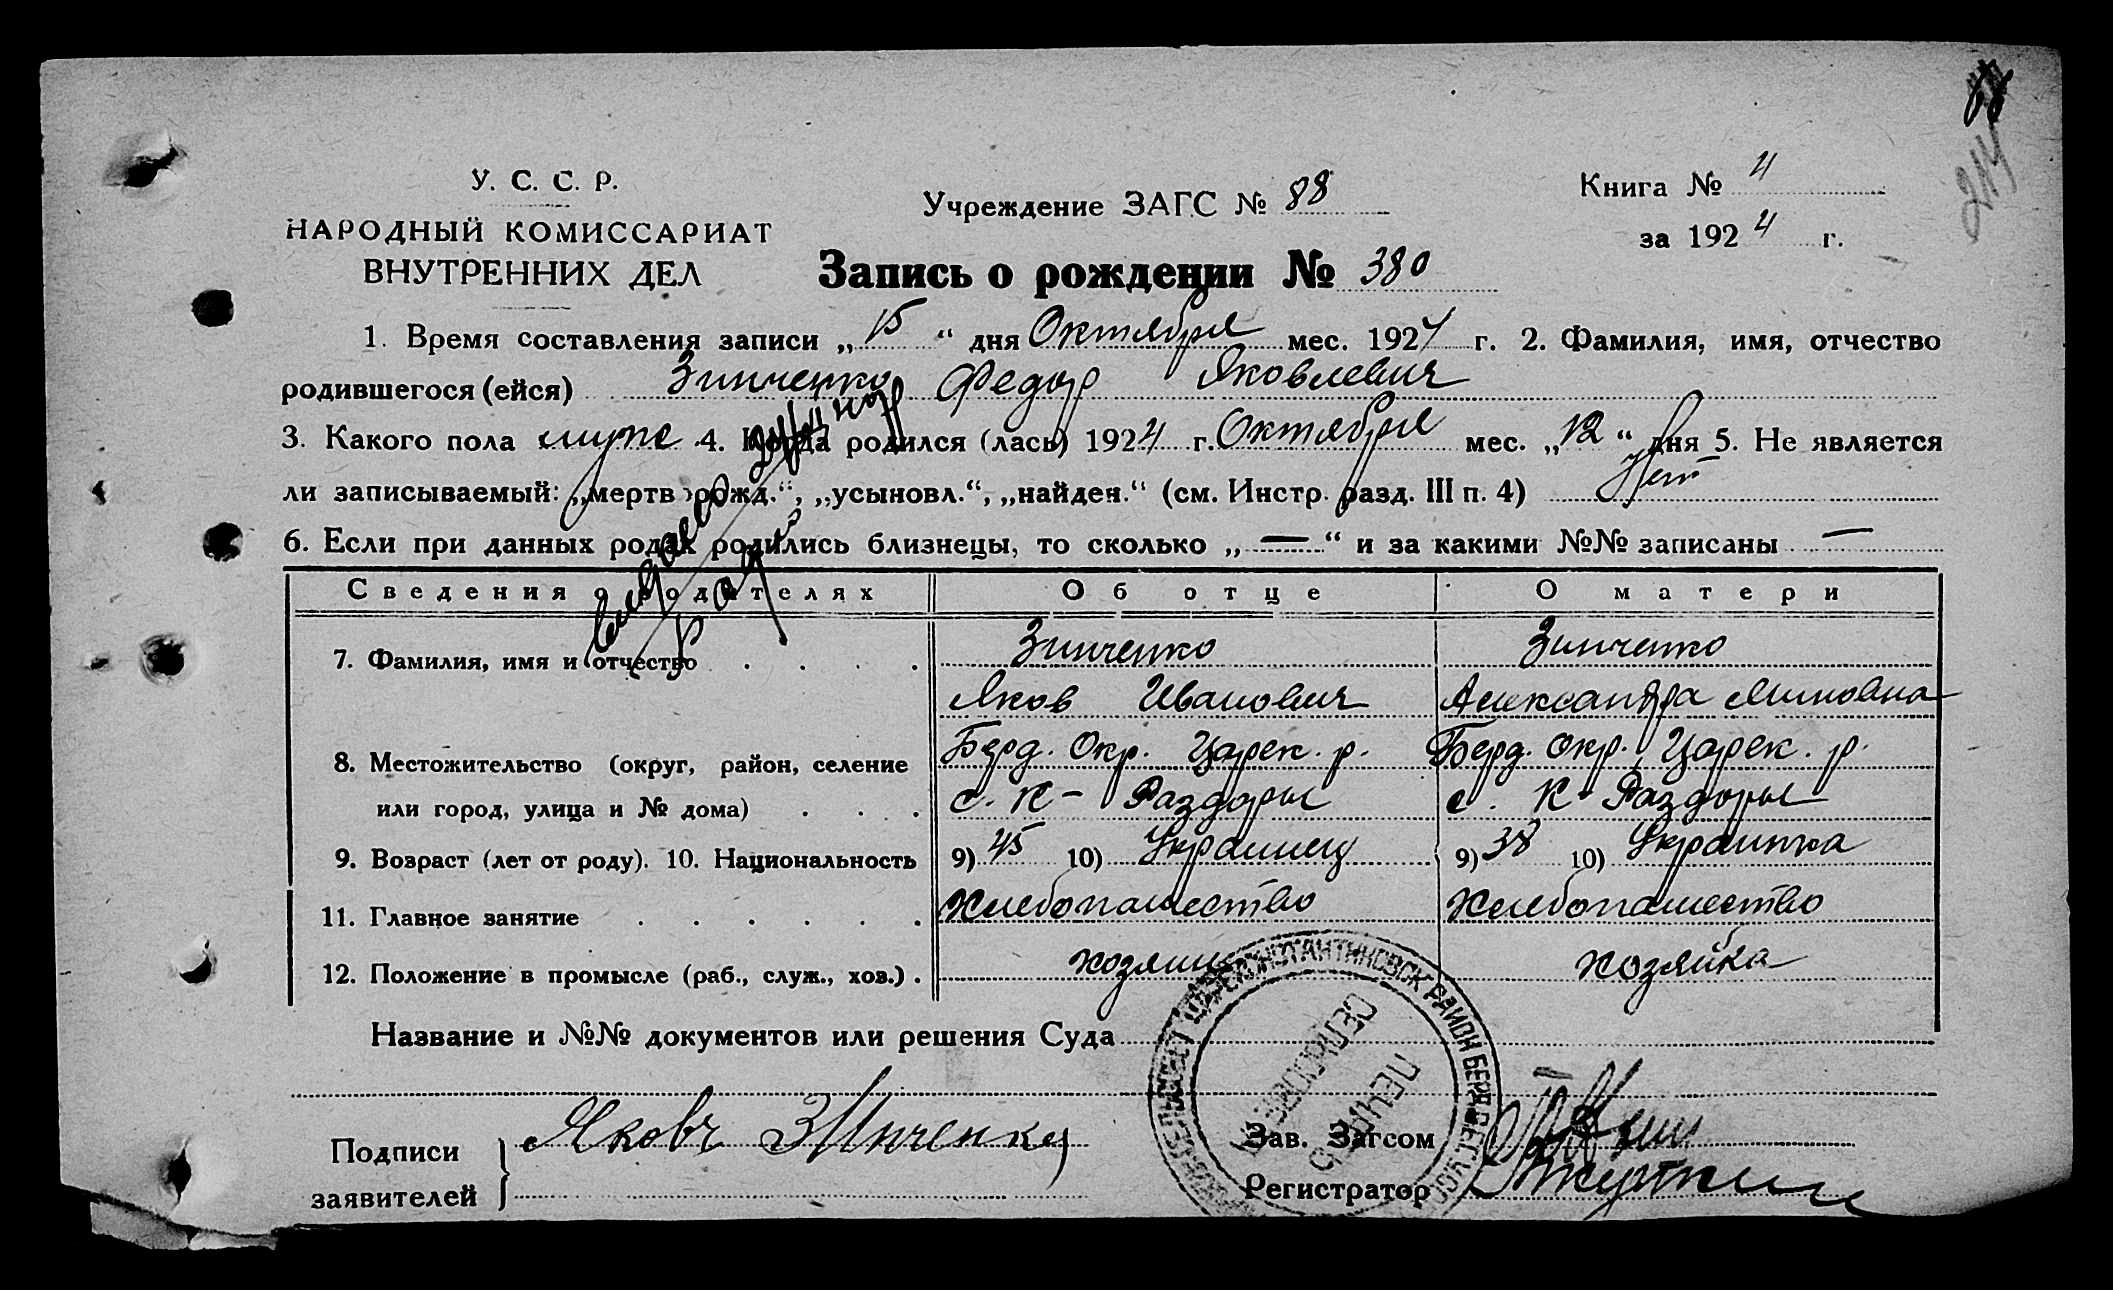 214
У. С. С. Р.
НАРОДНЫЙ КОМИССАРИАТ
ВНУТРЕННИХ ДЕЛ
Учреждение ЗАГС № 88
Книга № 4
за 1924 г.
Запись о рождении № 380
1. Время составления записи „15“ дня Октября мес. 1924 г. 2. Фамилия, имя, отчество
родившегося (ейся) Зинченко Федор Яковлевич
3. Какого пола муж. 4. Когда родился (лась) 1924 г. Октября мес. „12“ дня 5. Не является
ли записываемый: „мертворожд.“, „усыновл.“, „найден.“ (см. Инстр. разд. III п. 4) Нет
6. Если при данных родах родились близнецы, то сколько „—“ и за какими №№ записаны —
Сведения о родителях Об отце О матери
7. Фамилия, имя и отчество . . . . Зинченко Зинченко
Яков Иванович Александра Миновна
8. Местожительство (округ, район, селение Берд. Окр. Царек. р. Берд. Окр. Царек. р.
или город, улица и № дома) . . . с. К-Раздоры с. К-Раздоры
9. Возраст (лет от роду). 10. Национальность 9) 45 10) Украинец 9) 38 10) Украинка
11. Главное занятие . . . . . . Хлебопашество Хлебопашество
12. Положение в промысле (раб., служ., хоз.) . хозяин хозяйка
Название и №№ документов или решения Суда
Подписи
заявителей
Яковъ Зинченко
Зав. Загсом
Регистратор